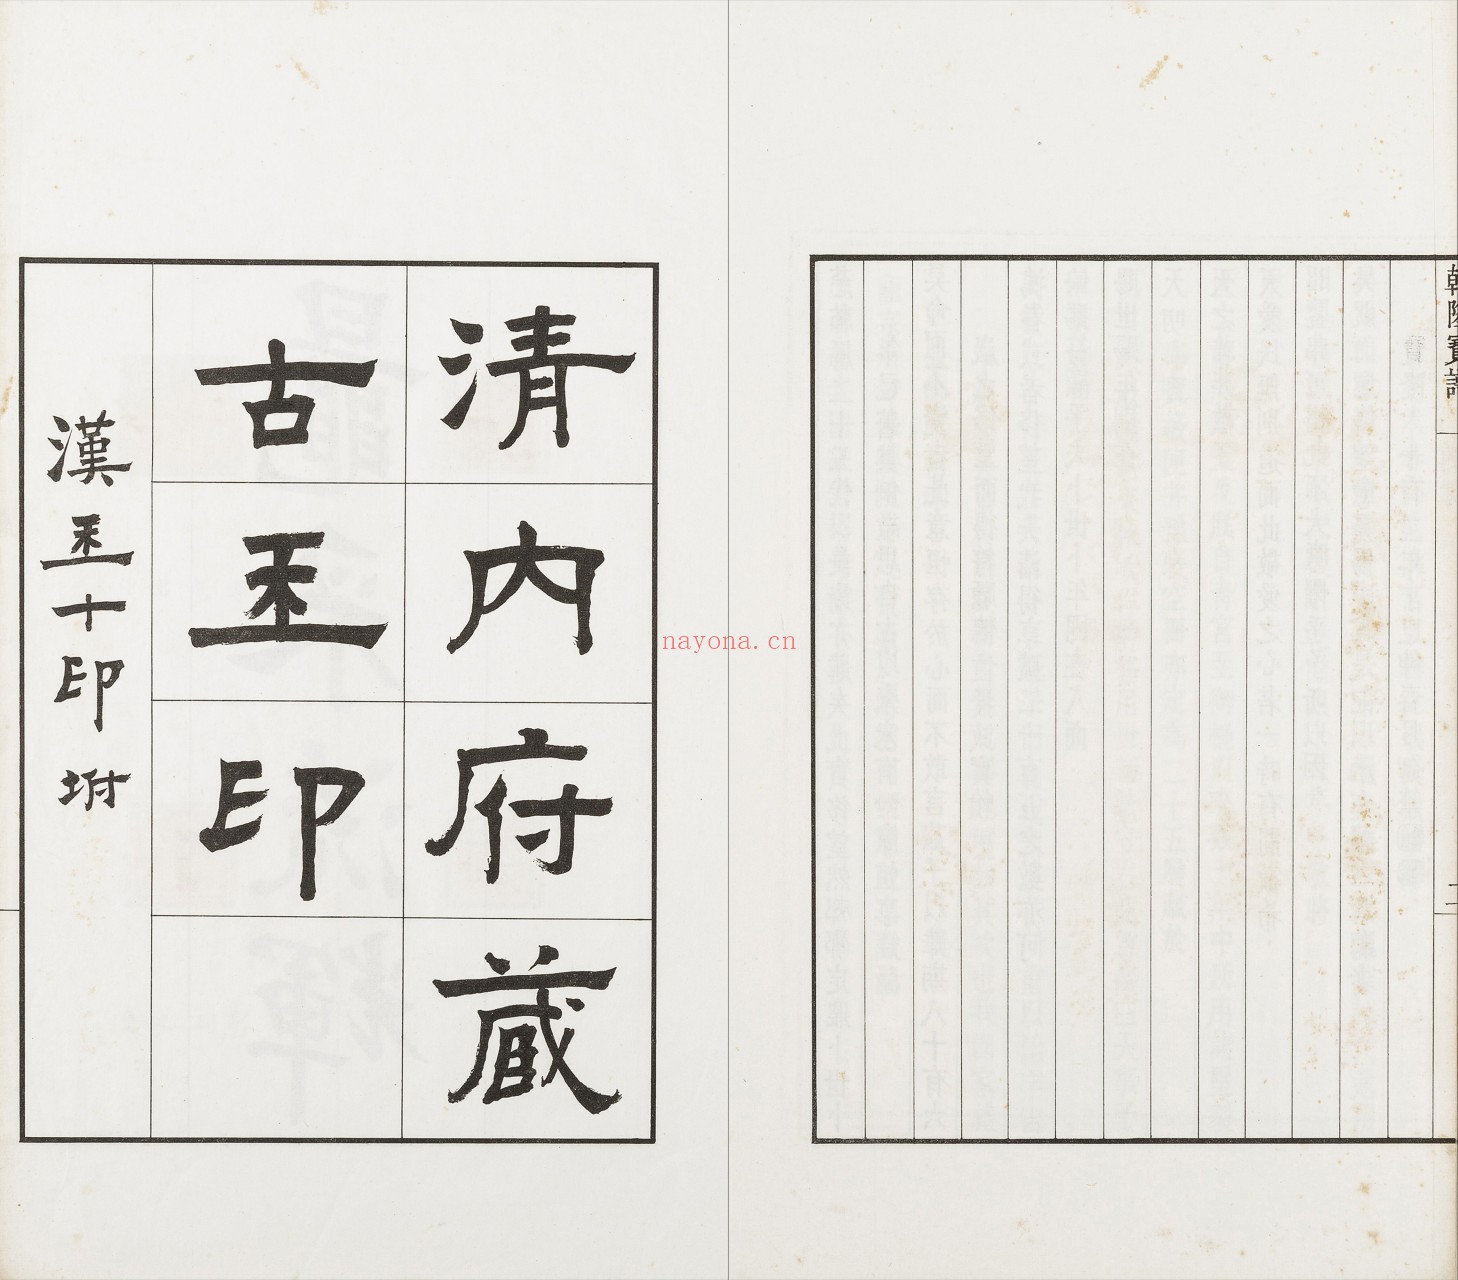 乾隆寶譜
二
清內府藏
古玉印
漢玉十印坿
nayona.cn